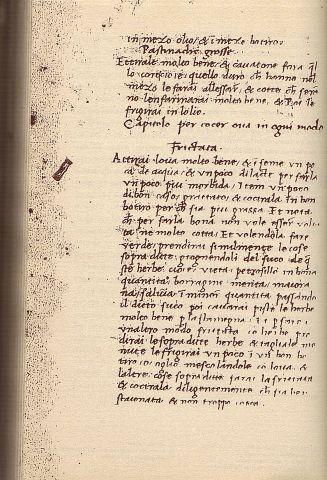 in mezo olio, & i mezo botiro
Pastinache grosse
Et reale molto bene, & cavatone fora q̃l
lo cortecio, e quello duro ch̃ hanno nel
mezo le farai allessar, & cotte ch̃ sera
no le infarinarai molto bene, & Poi le
frigirai in l'olio.
Capitolo per cocer ova in ogni modo
Frictata
Acterai l'ova molto bene, & iseme un po
co de acqua, & un poco di lacte per farla
un poco piu morbida, Item un poco
di bon caso grattato, & cocirala in bon
botiro per ch̃ sia piu grassa Et nota
ch̃ per farla bona non vole esser volta
ta ne molto cotta, Et volendola fare
verde, prenderai similmente le cose
sopra dicte, giognendoli del suco de q̃
ste herbe, cioe, vieta, petrosillo in bona
quantita, borragine, menta, maiora
na, salvia, i minor quantita, passando
il dicto suco poi cavarai piste le herbe
molto bene p la stamegna, Et p fare i
un altro modo frictata co herbe, pre
dirai le sopra dicte herbe, & tagliale mi
nute le frigirai un poco i un bon bo
tiro, o oglio, mescolandole co l'ova, &
l'altre cose sopra dicte farai la frictata
& cocirala diligentemente ch̃ sia ben
stasonata & non troppo cotta.